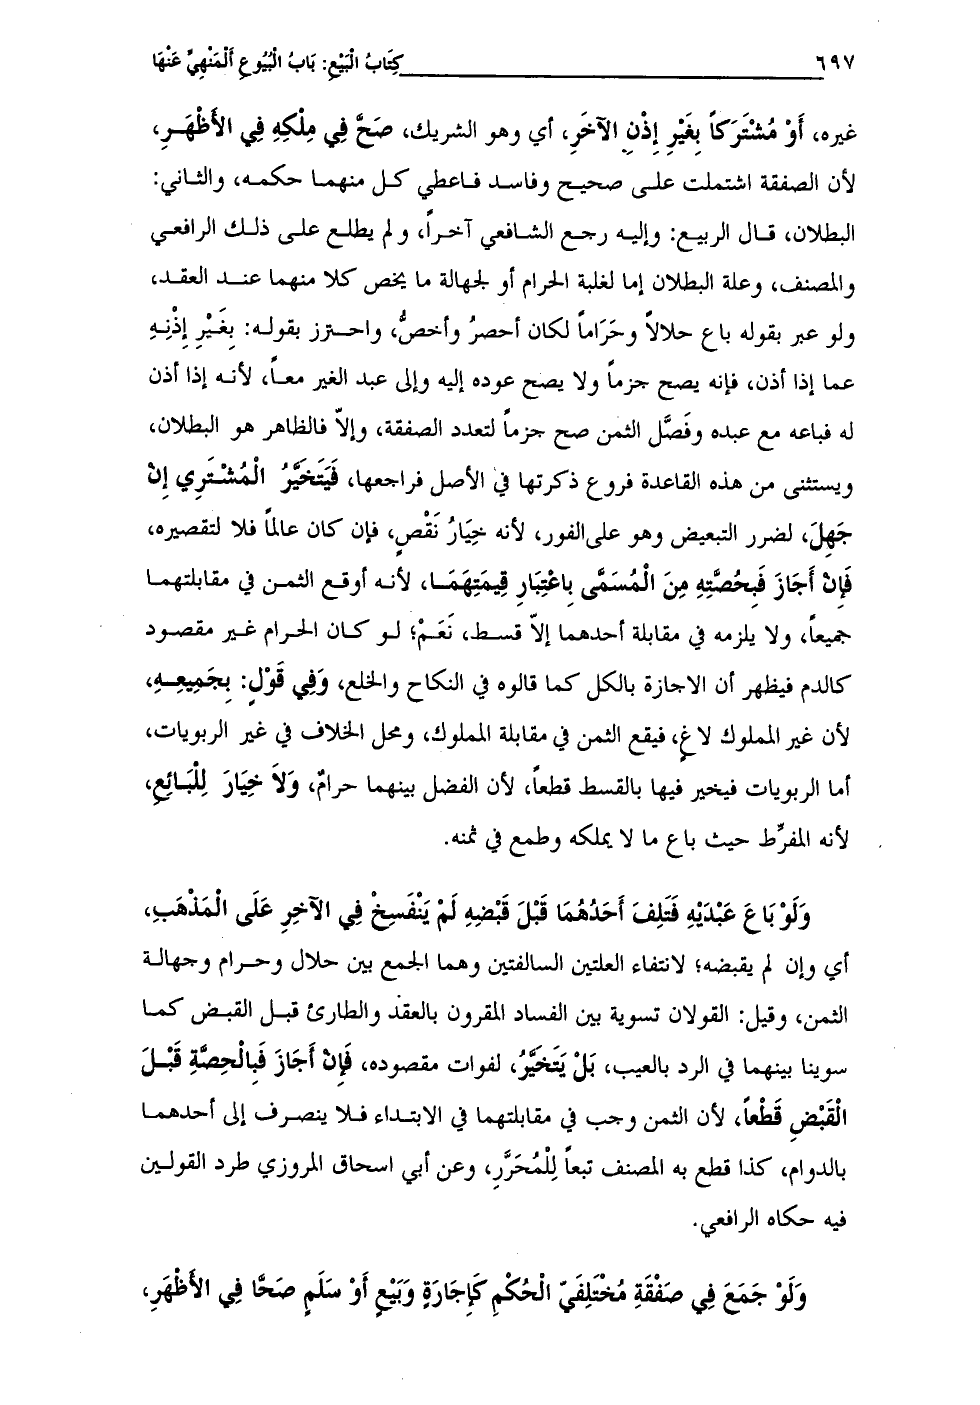 ٦٩٧ كِتَابُ الْبَيْعِ: بَابُ الْبُيُوعِ أَلْمَنْهِيِّ عَنْهَا
غيره، أَوْ مُشْتَرَكاً بِغَيْرِ إِذْنِ الآخَرِ، أي وهو الشريك، صَحَّ فِي مِلْكِهِ فِي الأَظْهَرِ،
لأن الصفقة اشتملت على صحيح وفاسد فاعطي كل منهما حكمه، والثاني:
البطلان، قال الربيع: وإليه رجع الشافعي آخراً، ولم يطلع على ذلك الرافعي
والمصنف، وعلة البطلان إما لغلبة الحرام أو لجهالة ما يخص كلا منهما عند العقد،
ولو عبر بقوله باع حلالاً وحَرَاماً لكان أحصرُ وأخصُّ، واحترز بقوله: بِغَيْرِ إِذْنِهِ
عما إذا أذن، فإنه يصح جزماً ولا يصح عوده إليه وإلى عبد الغير معاً، لأنه إذا أذن
له فباعه مع عبده وفَصَّل الثمن صح جزماً لتعدد الصفقة، وإلاّ فالظاهر هو البطلان،
ويستثنى من هذه القاعدة فروع ذكرتها في الأصل فراجعها، فَيَتَخَيَّرُ الْمُشْتَرِي إِنْ
جَهِلَ، لضرر التبعيض وهو على الفور، لأنه خِيَارُ نَقْصٍ، فإن كان عالماً فلا لتقصيره،
فَإِنْ أَجَازَ فَبِحُصَّتِهِ مِنَ الْمُسَمَّى بِاعْتِبَارِ قِيمَتِهِمَا، لأنه أوقع الثمن في مقابلتهما
جميعاً، ولا يلزمه في مقابلة أحدهما إلاّ قسط، نَعَمْ؛ لو كان الحرام غير مقصود
كالدم فيظهر أن الاجازة بالكل كما قالوه في النكاح والخلع، وَفِي قَوْلٍ: بِجَمِيعِهِ،
لأن غير المملوك لاغٍ، فيقع الثمن في مقابلة المملوك، ومحل الخلاف في غير الربويات،
أما الربويات فيخير فيها بالقسط قطعاً، لأن الفضل بينهما حرامٌ، وَلاَ خِيَارَ لِلْبَائِعِ،
لأنه المفرِّط حيث باع ما لا يملكه وطمع في ثمنه.
وَلَوْ بَاعَ عَبْدَيْهِ فَتَلِفَ أَحَدُهُمَا قَبْلَ قَبْضِهِ لَمْ يَنْفَسِخْ فِي الآخِرِ عَلَى الْمَذْهَبِ،
أي وإن لم يقبضه؛ لانتفاء العلتين السالفتين وهما الجمع بين حلال وحرام وجهالة
الثمن، وقيل: القولان تسوية بين الفساد المقرون بالعقد والطارئ قبل القبض كما
سوينا بينهما في الرد بالعيب، بَلْ يَتَخَيَّرُ، لفوات مقصوده، فَإِنْ أَجَازَ فَبِالْحِصَّةِ قَبْلَ
الْقَبْضِ قَطْعاً، لأن الثمن وجب في مقابلتهما في الابتداء فلا ينصرف إلى أحدهما
بالدوام، كذا قطع به المصنف تبعاً لِلْمُحَرَّرِ، وعن أبي اسحاق المروزي طرد القولين
فيه حكاه الرافعي.
وَلَوْ جَمَعَ فِي صَفْقَةِ مُخْتَلِفَيِّ الْحُكْمِ كَإِجَارَةٍ وَبَيْعٍ أَوْ سَلَمٍ صَحَّا فِي الأَظْهَرِ،